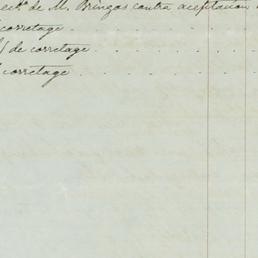 de M. Bringas contra aceptacion
corretage
de corretage
corretage